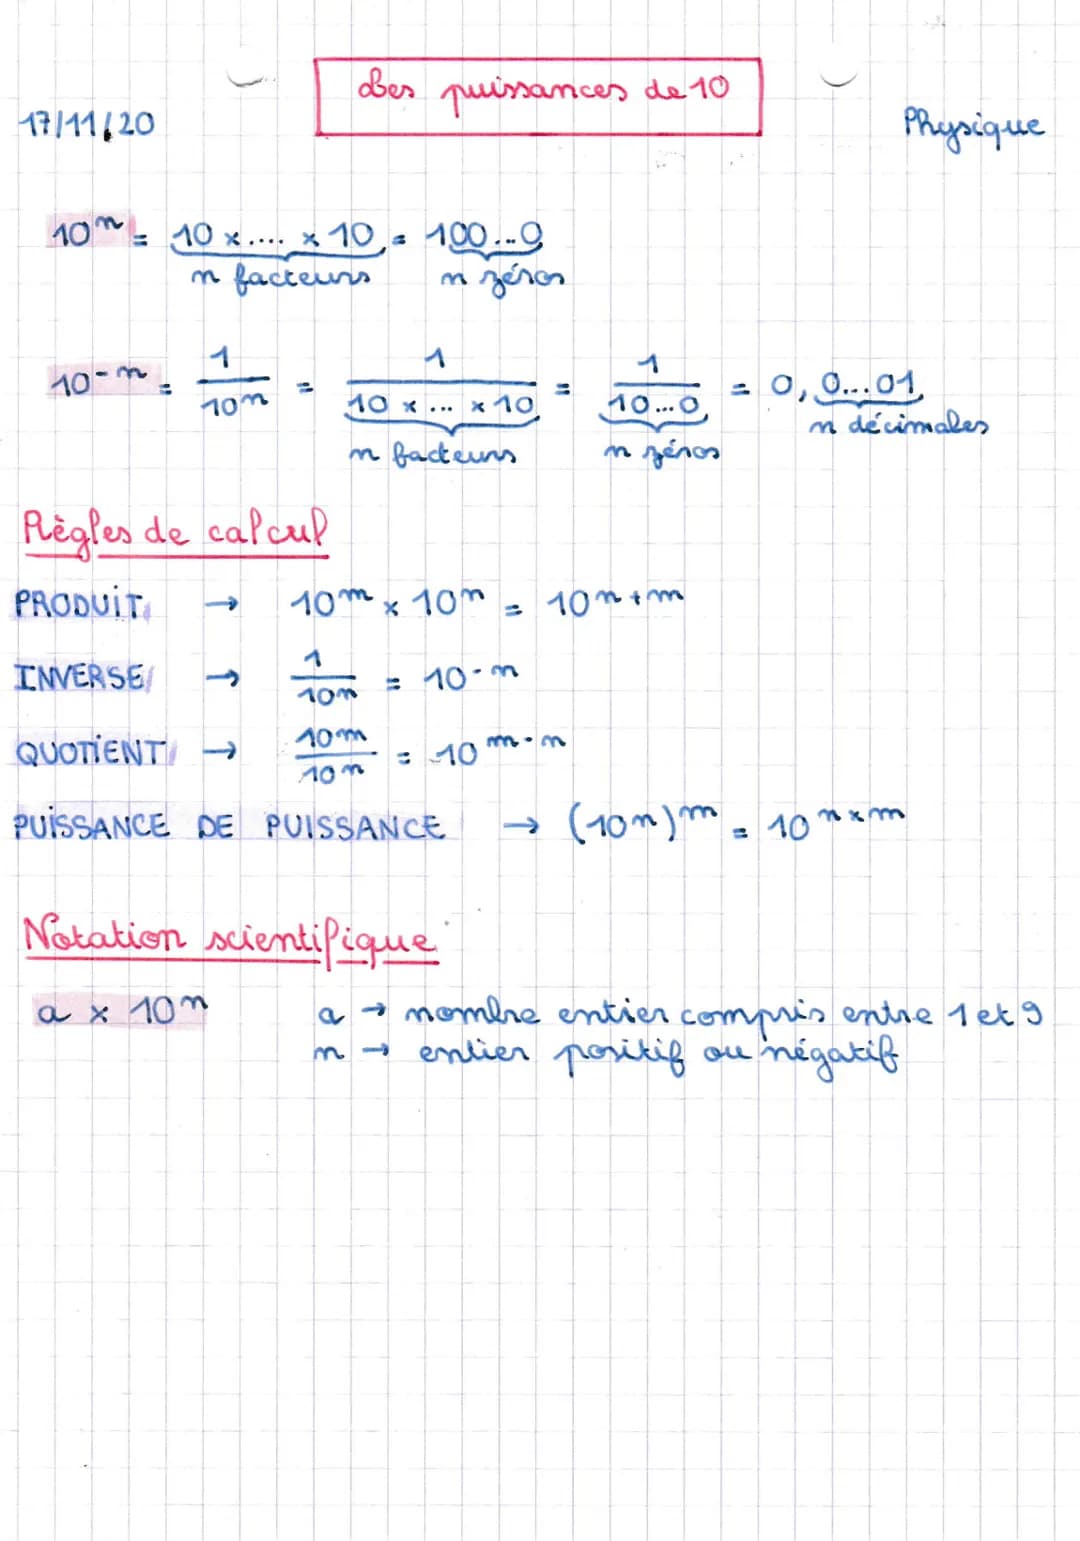 Les puissances de 10
17/11/20
Physique
10ⁿ = 10 x .... x 10 = 100...0
n facteurs n zéros
10⁻ⁿ = 1/10ⁿ = 1/(10 x ... x 10) = 1/(10...0) = 0,0...01
n facteurs n zéros n décimales
Règles de calcul
PRODUIT → 10ᵐ x 10ⁿ = 10ⁿ⁺ᵐ
INVERSE → 1/10ⁿ = 10⁻ⁿ
QUOTIENT → 10ᵐ/10ⁿ = 10ᵐ⁻ⁿ
PUISSANCE DE PUISSANCE → (10ⁿ)ᵐ = 10ⁿˣᵐ
Notation scientifique
a x 10ⁿ a → nombre entier compris entre 1 et 9
n → entier positif ou négatif